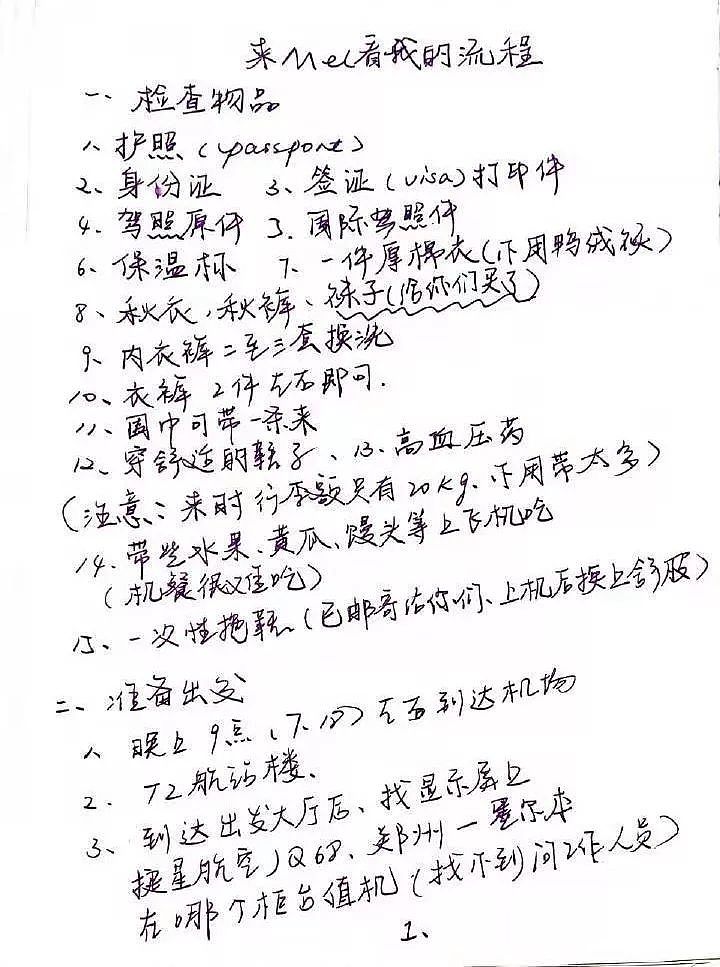 来Mel看我的流程
一、检查物品
1、护照(passport)
2、身份证 3、签证(visa)打印件
4、驾照原件 5、国际驾照件
6、保温杯 7、一件厚棉衣(不用鸭绒袄)
8、秋衣、秋裤、袜子(给你们买了)
9、内衣裤二至三套换洗
10、衣裤2件左右即可.
11、围巾可带一条来
12、穿舒适的鞋子、13、高血压药
(注意:来时行李额只有20kg、不用带太多)
14、带些水果、黄瓜、馒头等上飞机吃
(机餐很难吃)
15、一次性拖鞋(已邮寄给你们、上机后换上舒服)
二、准备出发
1、晚上9点(7.10)左右到达机场
2、T2航站楼、
3、到达出发大厅后、找显示屏上
捷星航空JQ68、郑州—墨尔本
在哪个柜台值机(找不到问工作人员)
1、